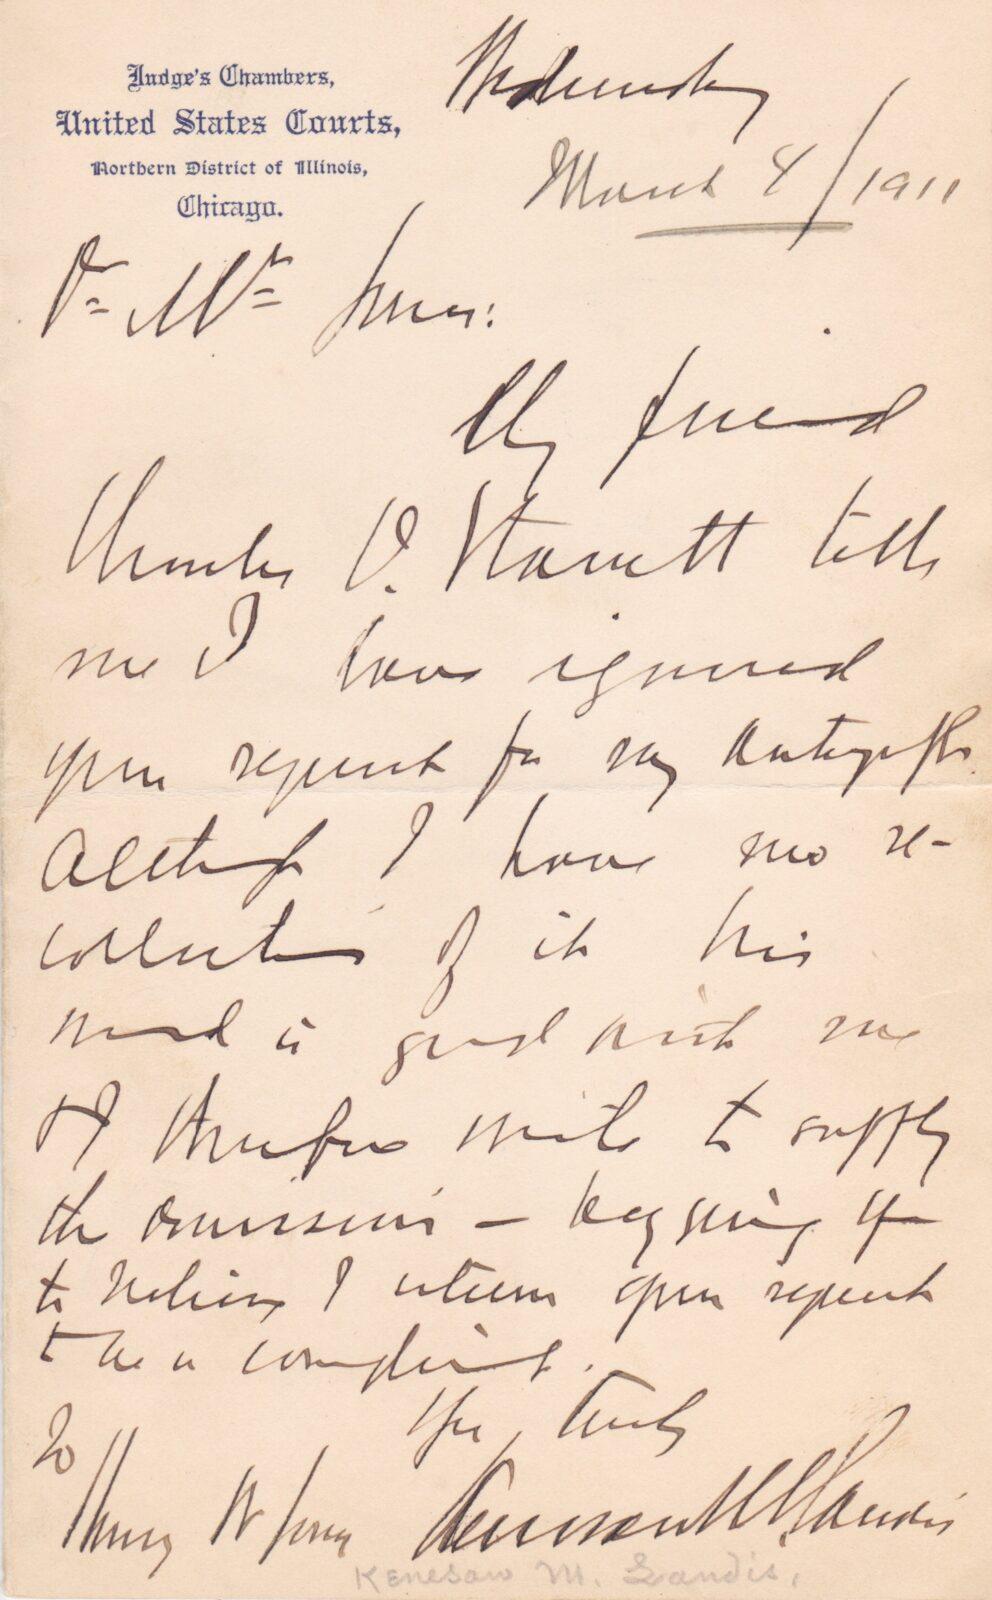 Judge's Chambers,
United States Courts,
Northern District of Illinois,
Chicago.
Wednesday
March 8/1911
Dr Mr Jones:
My friend
Charles V. Starrett tells
me I have ignored
your request for my autograph.
Although I have no re-
collection of it his
word is good with me
& I therefore write to supply
the omission – begging you
to believe I esteem your request
to be a compliment.
Yrs truly
To
Henry W Jones Kenesaw M Landis
Kenesaw M. Landis.